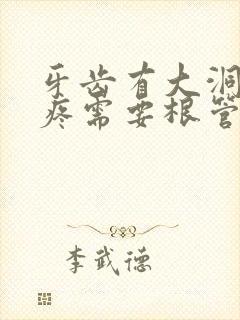 牙齿有大洞
疼需要根管
李武德